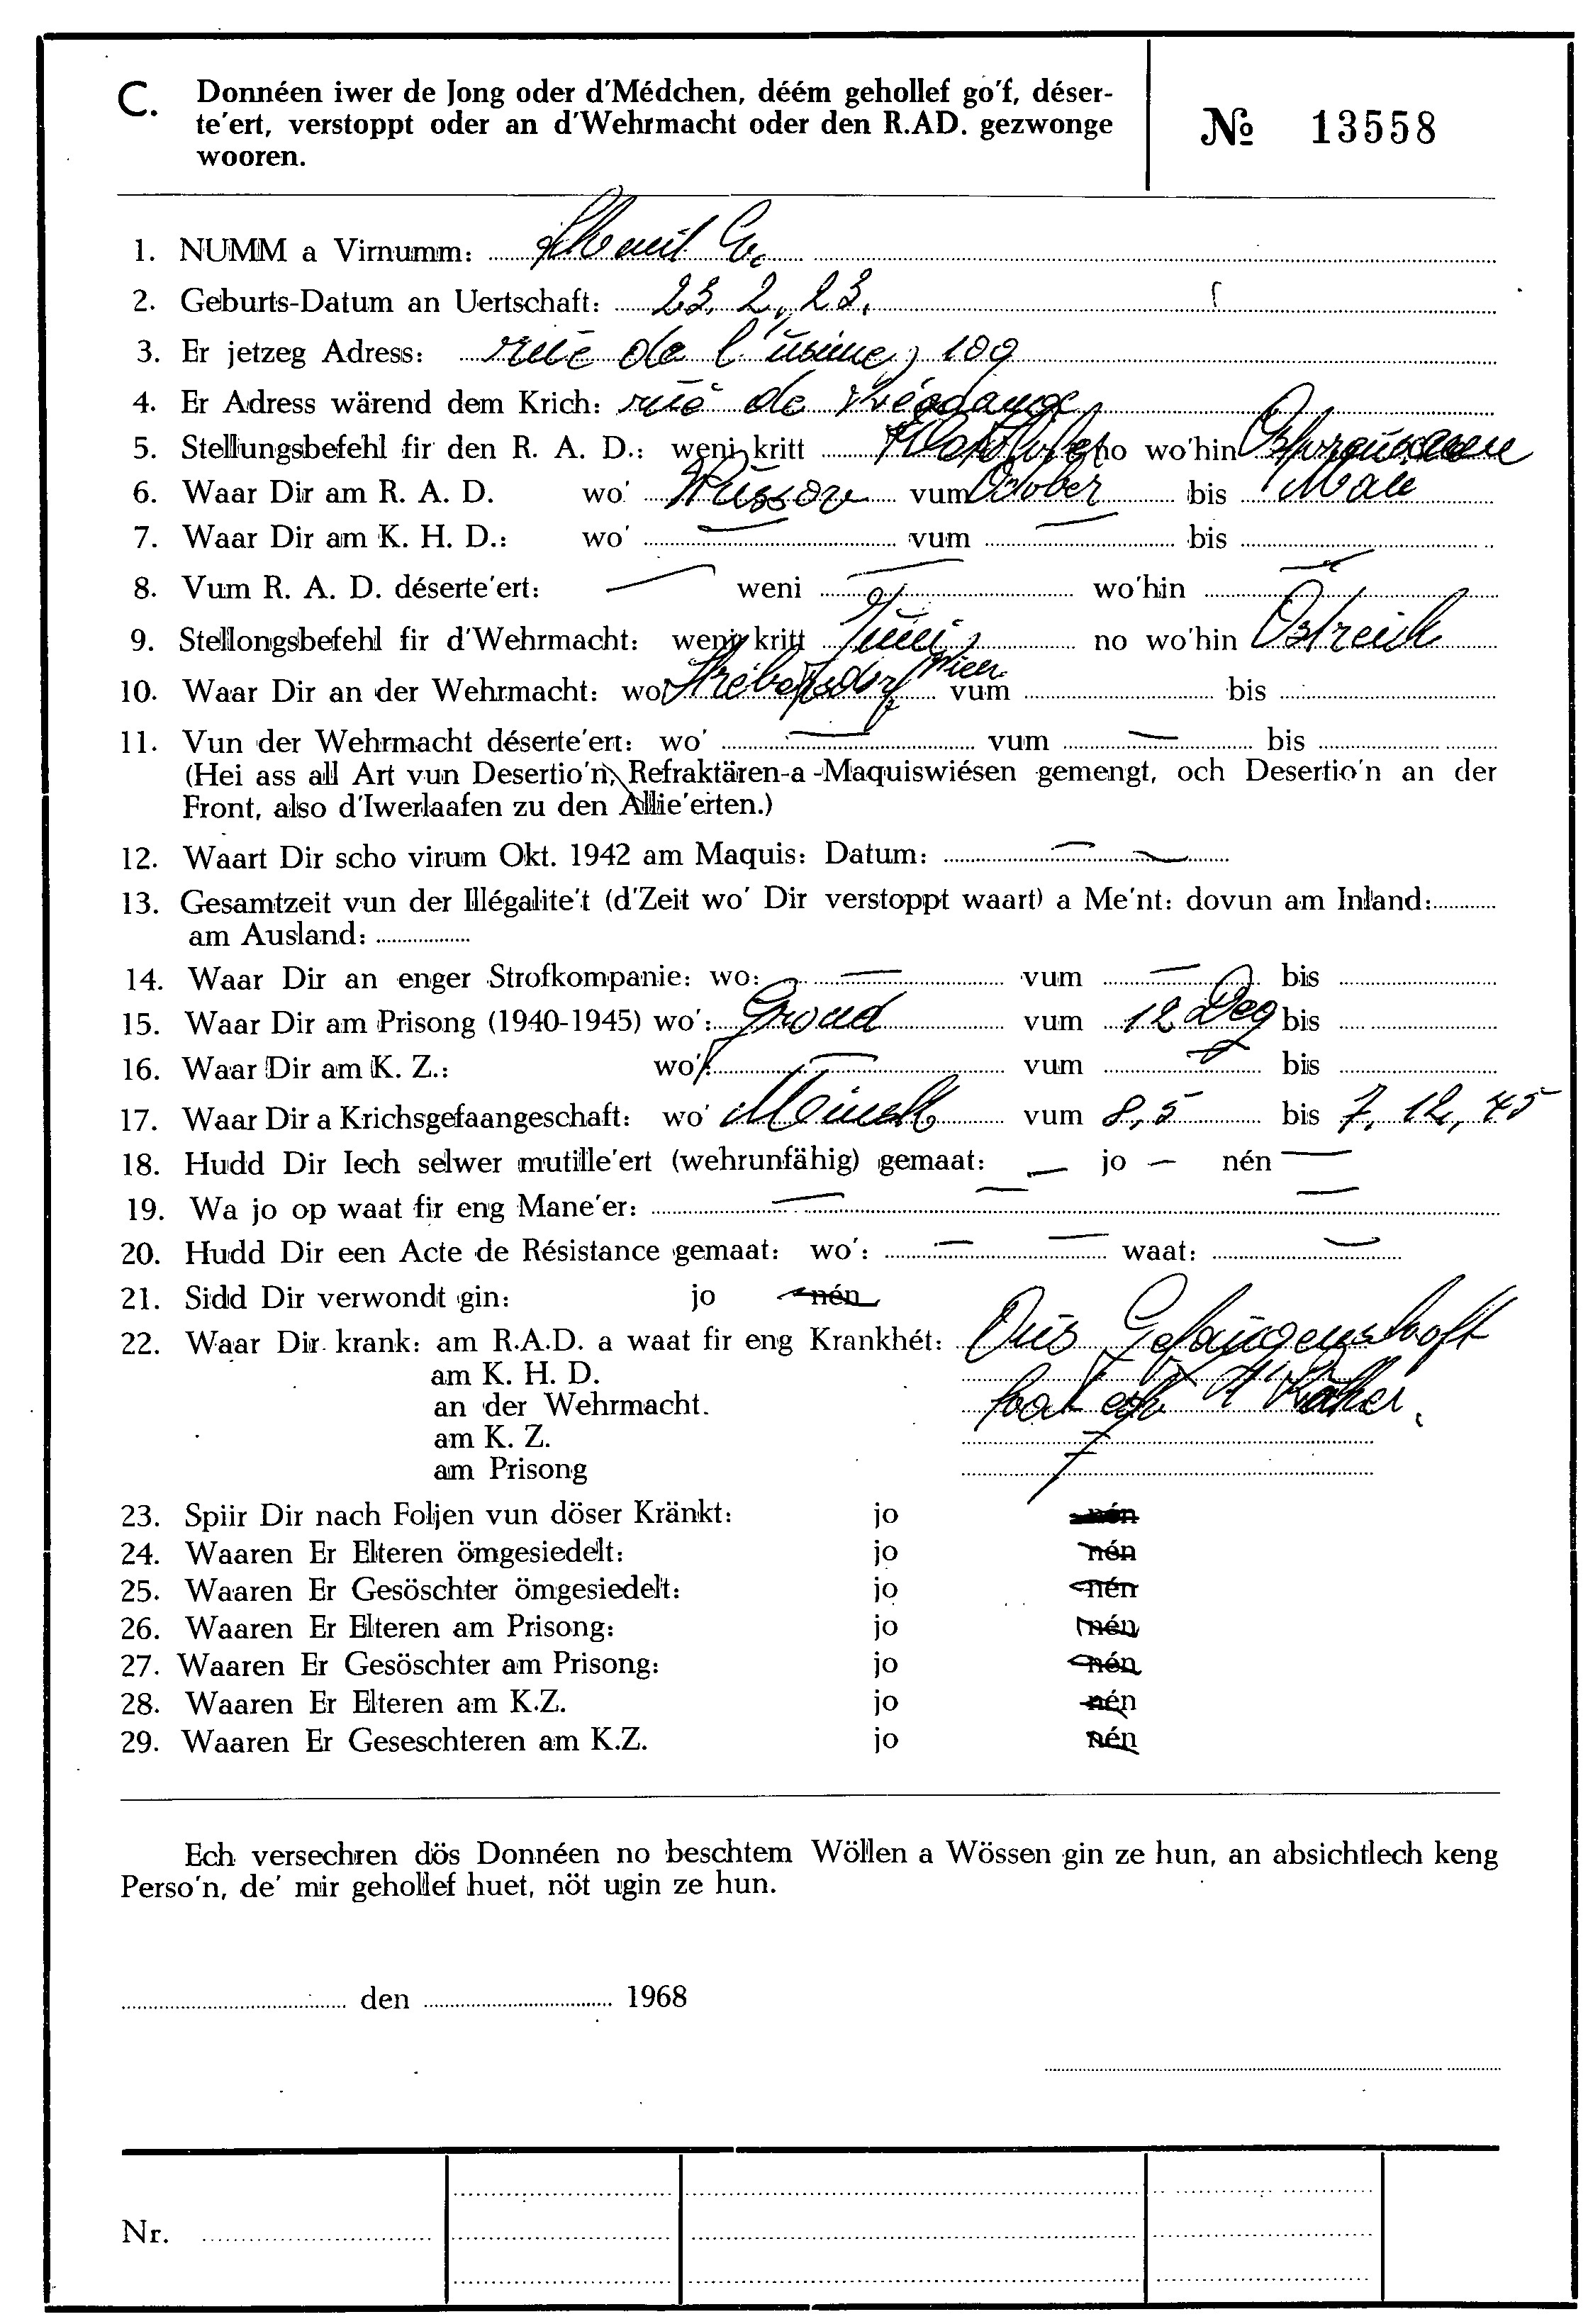 C. Donnéen iwer de Jong oder d'Médchen, déém gehollef go'f, déser-
te'ert, verstoppt oder an d'Wehrmacht oder den R.AD. gezwonge
wooren.
№ 13558
1. NUMM a Virnumm:
2. Geburts-Datum an Uertschaft: 23. 2. 23.
3. Er jetzeg Adress: rue de l'usine, 109
4. Er Adress wärend dem Krich: rue de
5. Stellungsbefehl fir den R. A. D.: weni kritt no wo'hin
6. Waar Dir am R. A. D. wo' Wussow vum October bis
7. Waar Dir am K. H. D.: wo' — vum — bis
8. Vum R. A. D. déserte'ert: — weni — wo'hin —
9. Stellongsbefehl fir d'Wehrmacht: weni kritt Juni no wo'hin Ostreich
10. Waar Dir an der Wehrmacht: wo' Strebersdorf Wien vum bis
11. Vun der Wehrmacht déserte'ert: wo' — vum — bis
(Hei ass all Art vun Desertio'n, Refraktären-a-Maquiswiésen gemengt, och Desertio'n an der
Front, also d'Iwerlaafen zu den Allie'erten.)
12. Waart Dir scho virum Okt. 1942 am Maquis: Datum: — —
13. Gesamtzeit vun der Illégalite't (d'Zeit wo' Dir verstoppt waart) a Me'nt: dovun am Inland:
am Ausland:
14. Waar Dir an enger Strofkompanie: wo: — vum — bis
15. Waar Dir am Prisong (1940-1945) wo': Grond vum 12 bis
16. Waar Dir am K. Z.: wo': — vum bis
17. Waar Dir a Krichsgefaangeschaft: wo' vum 8,5 bis 7. 12, 45
18. Hudd Dir Iech selwer mutille'ert (wehrunfähig) gemaat: — jo — nén —
19. Wa jo op waat fir eng Mane'er: — — —
20. Hudd Dir een Acte de Résistance gemaat: wo': — — waat: —
21. Sidd Dir verwondt gin: jo nén
22. Waar Dir krank: am R.A.D. a waat fir eng Krankhét: Gefangenschaft
am K. H. D.
an der Wehrmacht.
am K. Z.
am Prisong
23. Spiir Dir nach Foljen vun döser Kränkt: jo nén
24. Waaren Er Elteren ömgesiedelt: jo nén
25. Waaren Er Gesöschter ömgesiedelt: jo nén
26. Waaren Er Elteren am Prisong: jo nén
27. Waaren Er Gesöschter am Prisong: jo nén
28. Waaren Er Elteren am K.Z. jo nén
29. Waaren Er Geseschteren am K.Z. jo nén
Ech versechren dös Donnéen no beschtem Wöllen a Wössen gin ze hun, an absichtlech keng
Perso'n, de' mir gehollef huet, nöt ugin ze hun.
den 1968
Nr.